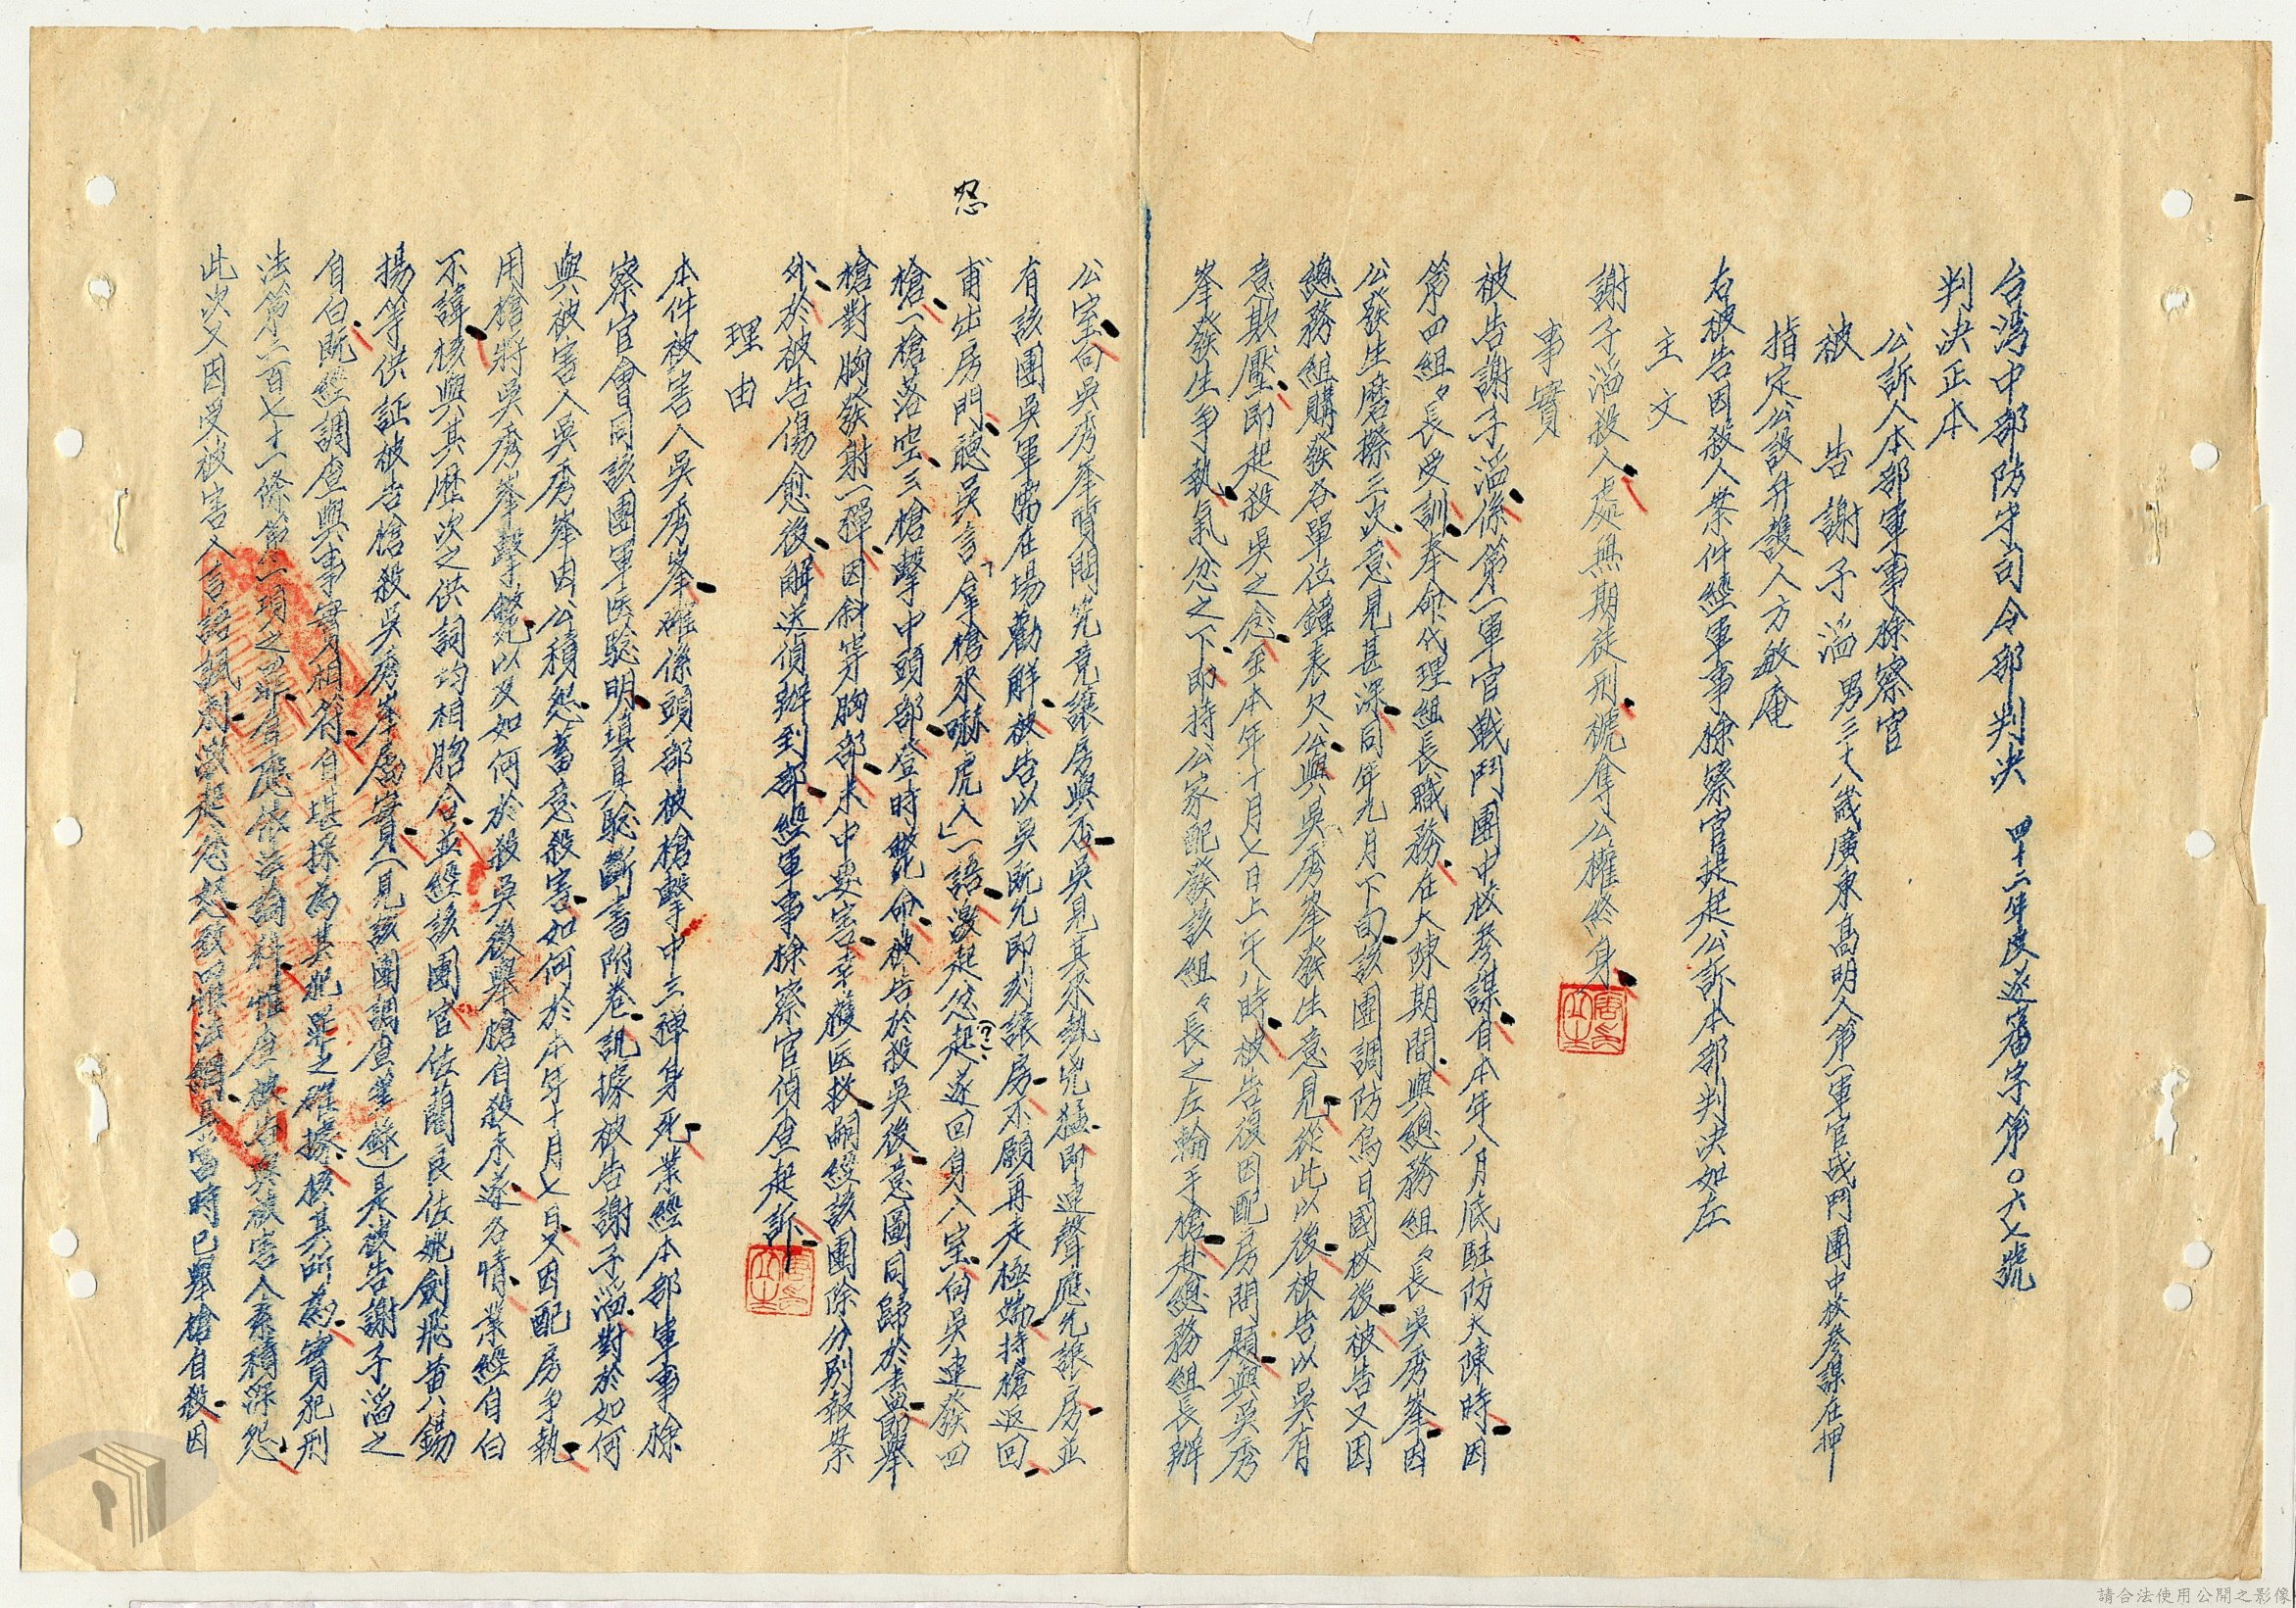 台湾中部防守司令部判決 四十二年度遂審字第〇六七號
判決正本
公訴人本部軍事檢察官
被告謝子滔男三十八歲廣東高明人第一軍官战鬥團中校參謀在押
指定公設弁護人方敏庵
右被告因殺人案件經軍事檢察官提起公訴本部判決如左
主文
謝子滔殺人處無期徒刑褫奪公權終身
事實
被告謝子滔係第一軍官戰鬥團中校參謀自本年八月底駐防大陳時因
第四組々長受訓奉命代理組長職務在大陳期間與總務組々長吳秀峯因
公發生磨擦三次意見甚深同年九月下旬該團調防烏日國校後被告又因
總務組購發各單位鐘表欠公與吳秀峯發生意見從此以後被告以吳有
意欺壓即起殺吳之念至本年十月七日上午八時被告復因配房問題與吳秀
峯發生爭執氣忿之下即持公家配發該組々長之左輪手槍赴總務組長辦
公室向吳秀峯質問究竟讓房與否吳見其來執兇猛即連聲應允讓房並
有該團吳軍需在場勸解被告以吳既允即刻讓房不願再走極端持槍返回
甫出房門聽吳言「拿槍來嚇唬人」一語激起忿起(?)遂回身入室向吳連發四
怒
槍一槍落空三槍擊中頭部登時斃命被告於殺吳後意圖同歸於盡即舉
槍對胸發射一彈因斜穿胸部未中要害幸獲医救嗣經該團除分別報案
外於被告傷愈後解送偵辦到部經軍事檢察官偵查起訴
理由
本件被害人吳秀峯確係頭部被槍擊中三彈身死業經本部軍事檢
察官會同該團軍医驗明填具驗斷書附卷訊據被告謝子滔對於如何
與被害人吳秀峯因公積怨蓄意殺害如何於本年十月七日又因配房爭執
用槍將吳秀峯擊斃以及如何於殺吳後舉槍自殺未遂各情業經自白
不諱核與其歷次之供詞均相脗合並經該團官佐藺良佐姚劍飛黃六錫
揚等供証被告槍殺吳秀峯屬實(見該團調查筆錄)是被告謝子滔之
自白既經調查與事實相符自堪採為其犯罪之確據核其所為實犯刑
法第二百七十一條第一項之罪自應依法論科惟查被告與被害人素積深怨
此次又因受被害人言語諷刺激起忿怒致罹法網且當時已舉槍自殺因
請合法使用公開之影像